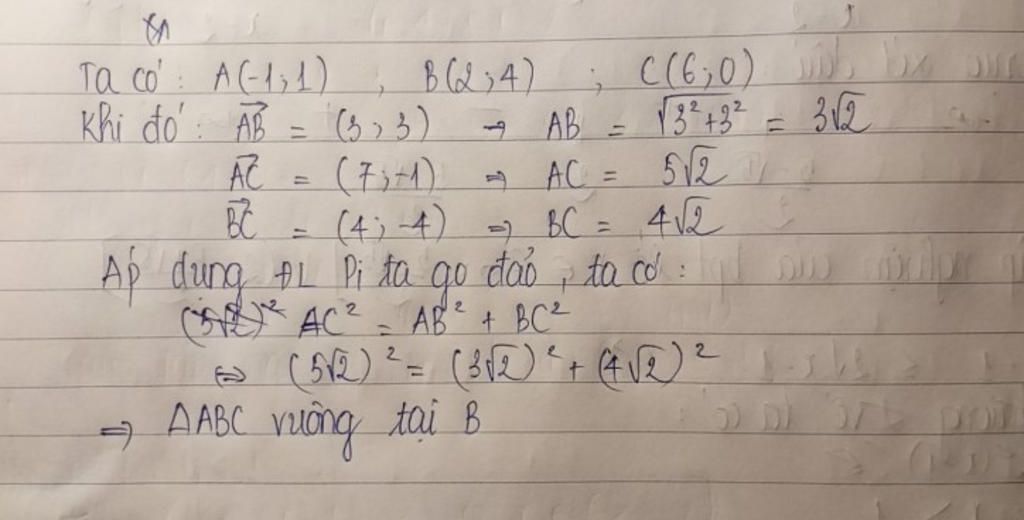 Ta có: A(-1;1) , B(2;4) ; C(6;0)
Khi đó: $\overrightarrow{AB}$ = (3;3) → AB = $\sqrt{3^2+3^2}$ = 3√2
$\overrightarrow{AC}$ = (7;-1) ⇒ AC = 5√2
$\overrightarrow{BC}$ = (4;-4) ⇒ BC = 4√2
Áp dụng ĐL Pi ta go đảo, ta có:
AC² = AB² + BC²
⇔ (5√2)² = (3√2)² + (4√2)²
⇒ ΔABC vuông tại B